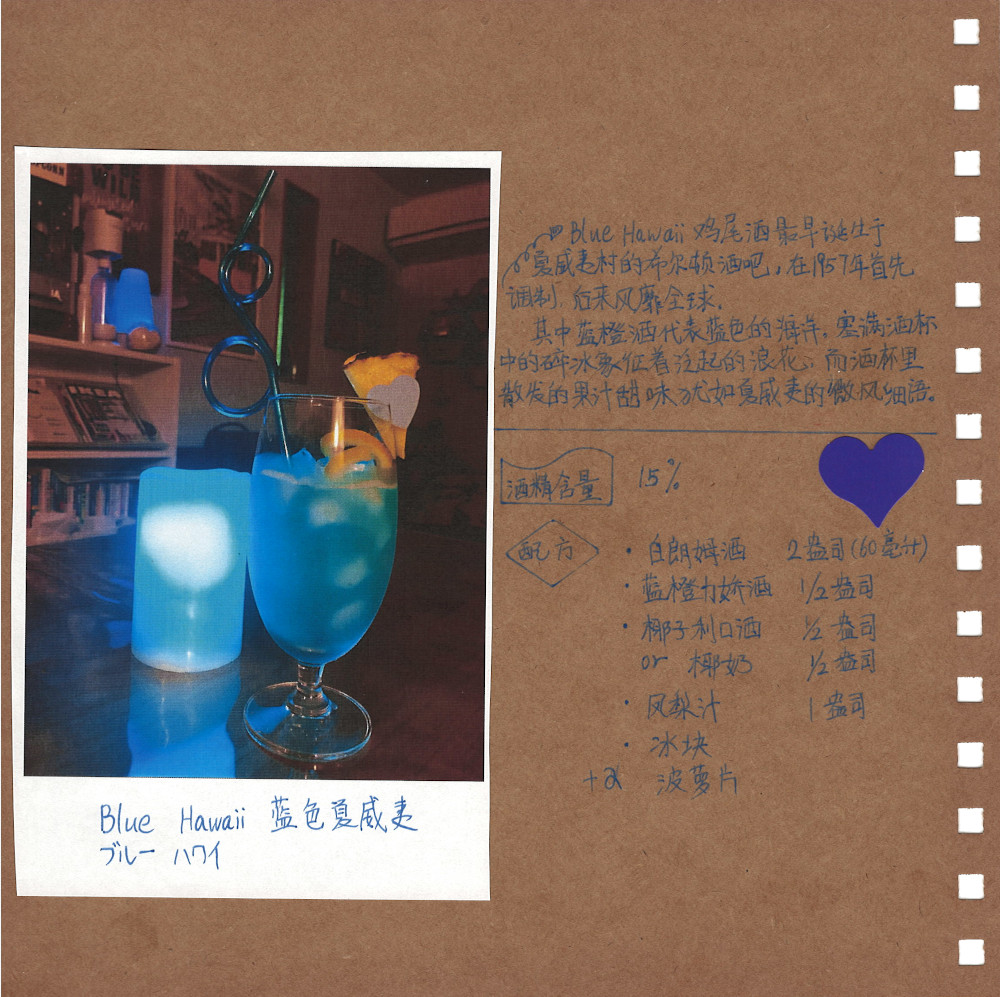 Blue Hawaii 鸡尾酒最早诞生于
夏威夷村的希尔顿酒吧，在1957年首先
调制，后来风靡全球．
其中蓝橙酒代表蓝色的海洋，塞满酒杯
中的碎冰象征着泛起的浪花，而酒杯里
散发的果汁甜味犹如夏威夷的微风细语。
酒精含量 15%
配方
· 白朗姆酒 2盎司(60毫升)
· 蓝橙力娇酒 1/2盎司
· 椰子利口酒 1/2盎司
or 椰奶 1/2盎司
· 凤梨汁 1盎司
· 冰块
菠萝片
Blue Hawaii 蓝色夏威夷
ブルー ハワイ